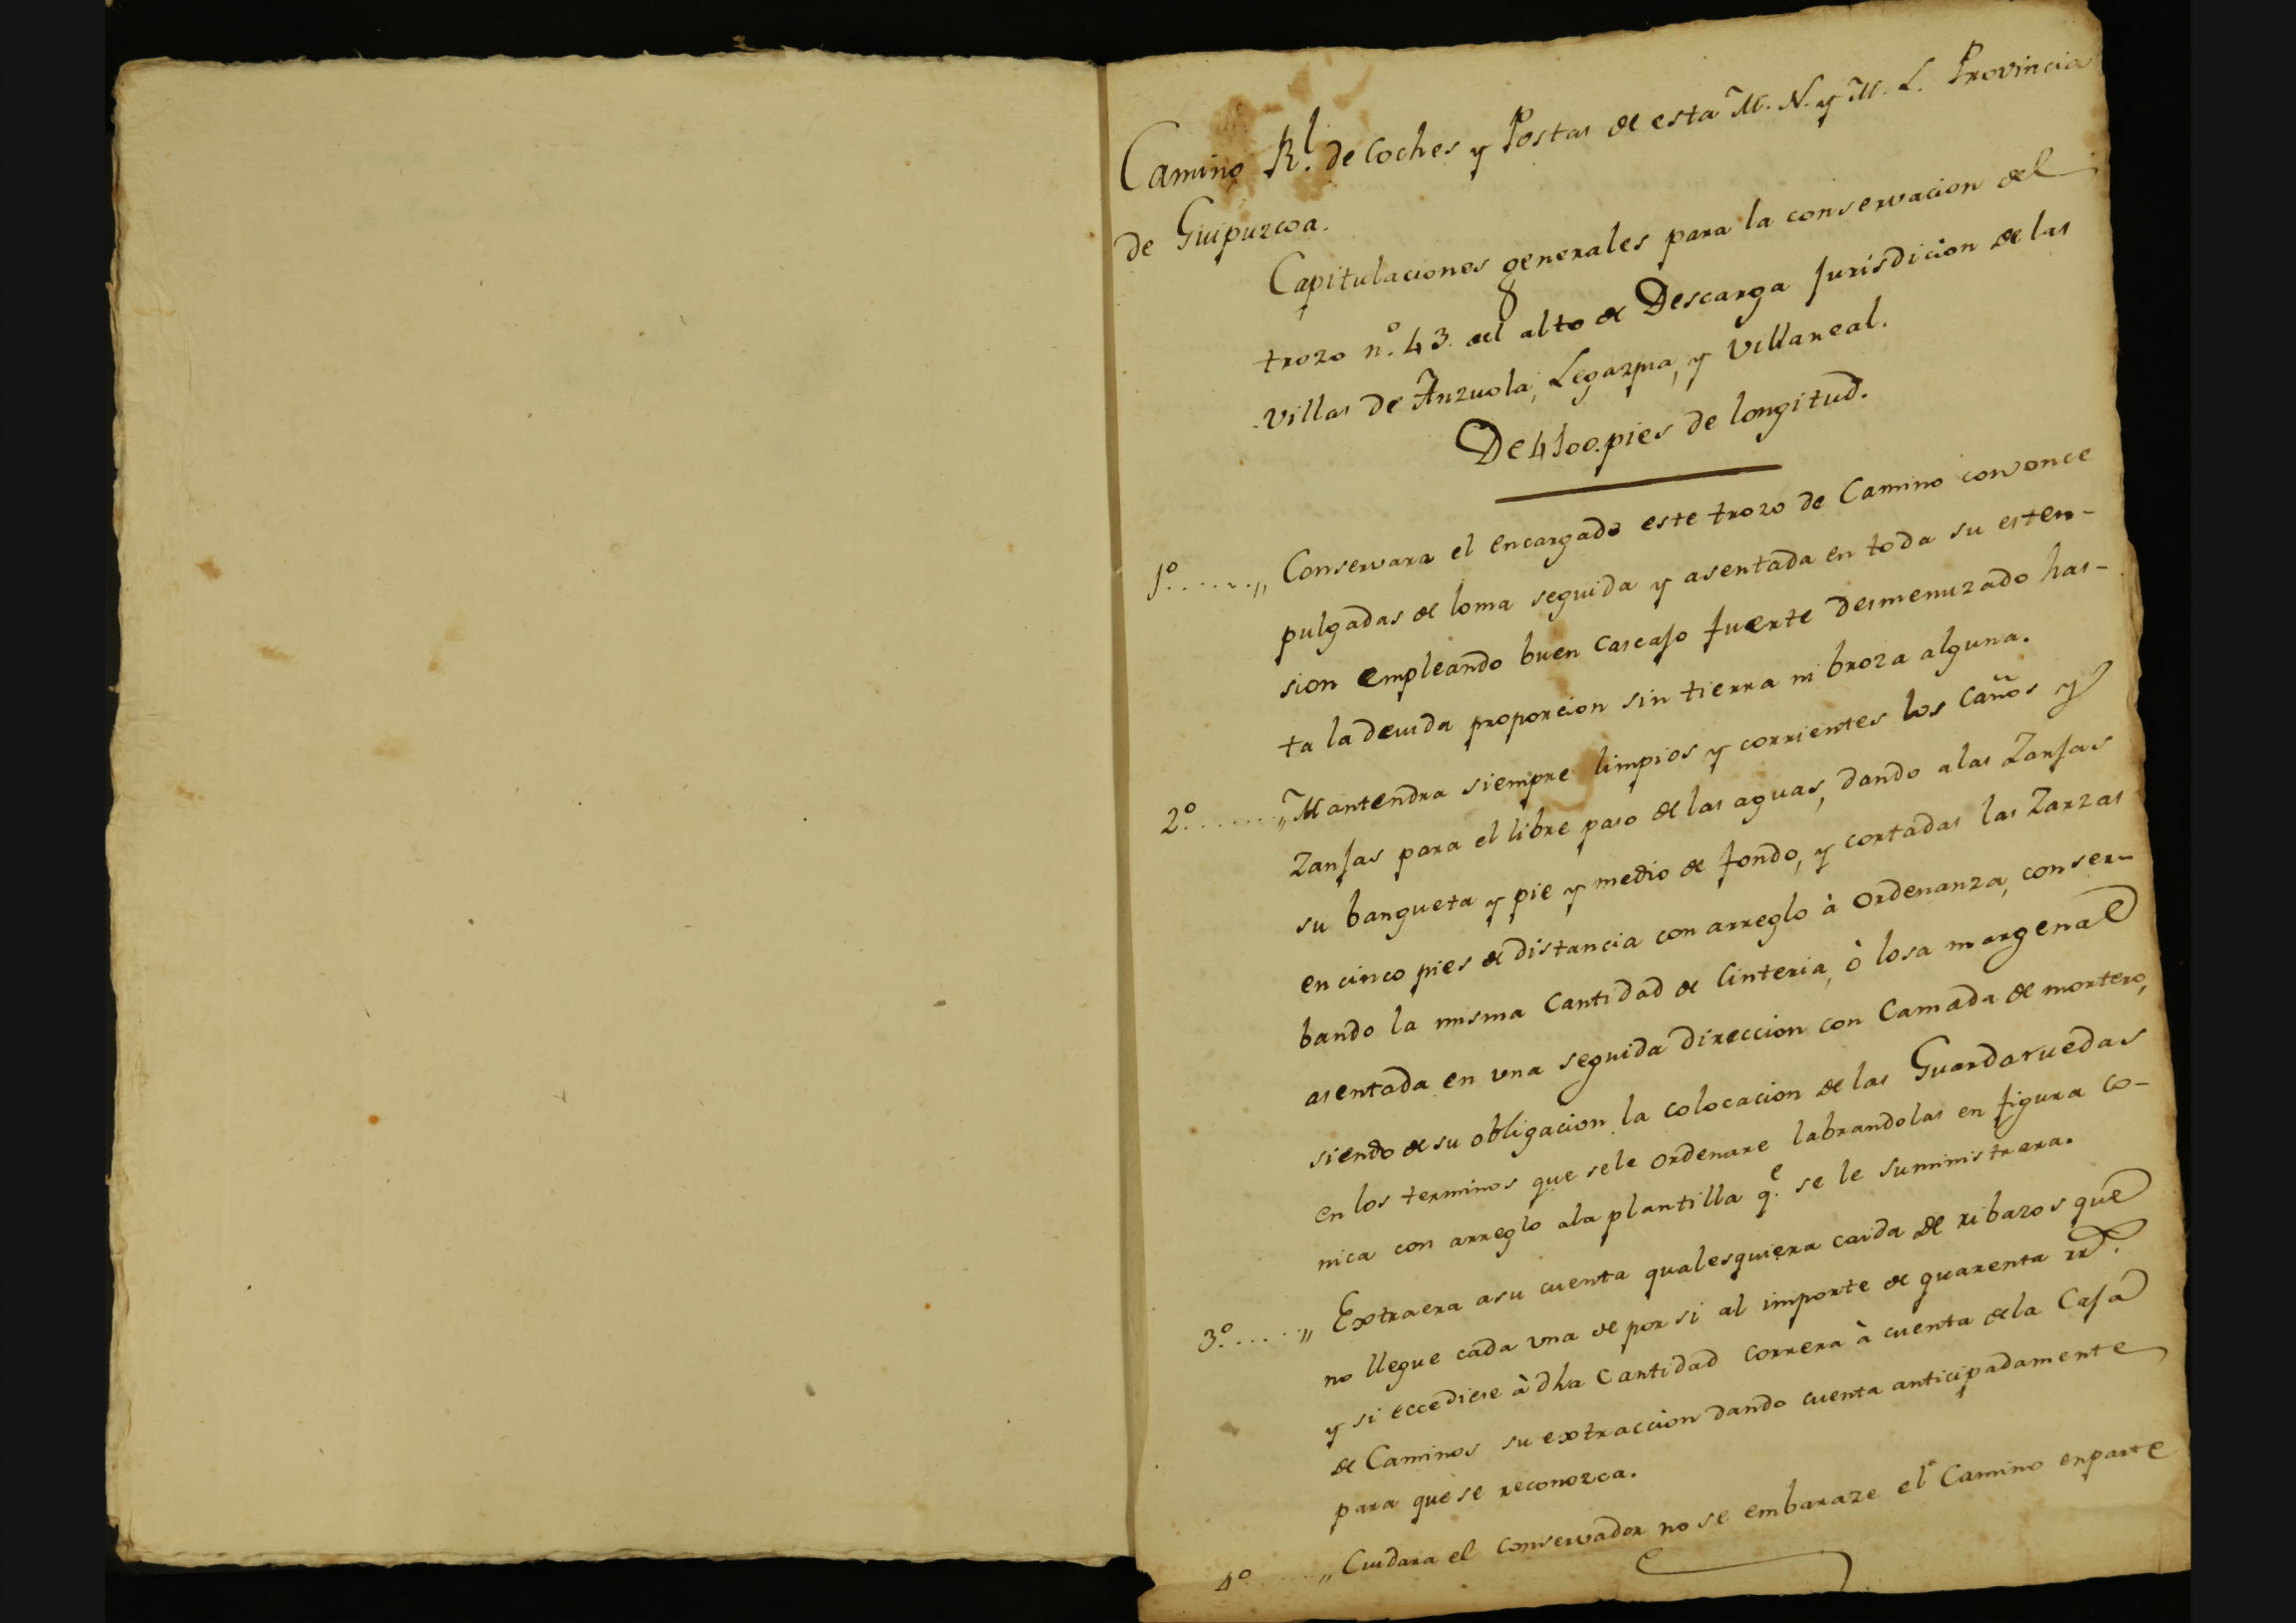 Camino Rl. de Coches y Postas de esta M. N. y M. L. Provincia
de Guipuzcoa.
Capitulaciones generales para la conservacion del
trozo n.º 43. del alto de Descarga Jurisdicion de las
villas de Anzuola, Legazpia, y Villareal.
De 4100. pies de longitud.
1º......,, Conservara el encargado este trozo de Camino con once
pulgadas de loma seguida y asentada en toda su esten-
sion empleando buen cascajo fuerte desmenuzado has-
ta la devida proporcion sin tierra ni broza alguna.
2º.......,, Mantendra siempre limpios y corrientes los caños y
Zanjas para el libre paso de las aguas, dando a las Zanjas
su bangueta y pie y medio de fondo, y cortadas las Zarzas
en cinco pies de distancia con arreglo à Ordenanza, conser-
bando la misma Cantidad de linteria, ò losa margenal
asentada en una seguida direccion con Camada de mortero,
siendo de su obligacion la colocacion de las Guardaruedas
en los terminos que se le ordenare labrandolas en figura co-
nica con arreglo a la plantilla q.e se le suministrara.
3º.....,, Extraera a su cuenta qualesquiera caida de ribazos que
no llegue cada una de por si al importe de quarenta rr.s
y si eccediese à dha Cantidad correra à cuenta de la Caja
de Caminos su extraccion dando cuenta anticipadamente
para que se reconozca.
4º......,, Cuidara el Conservador no se embaraze el Camino en parte